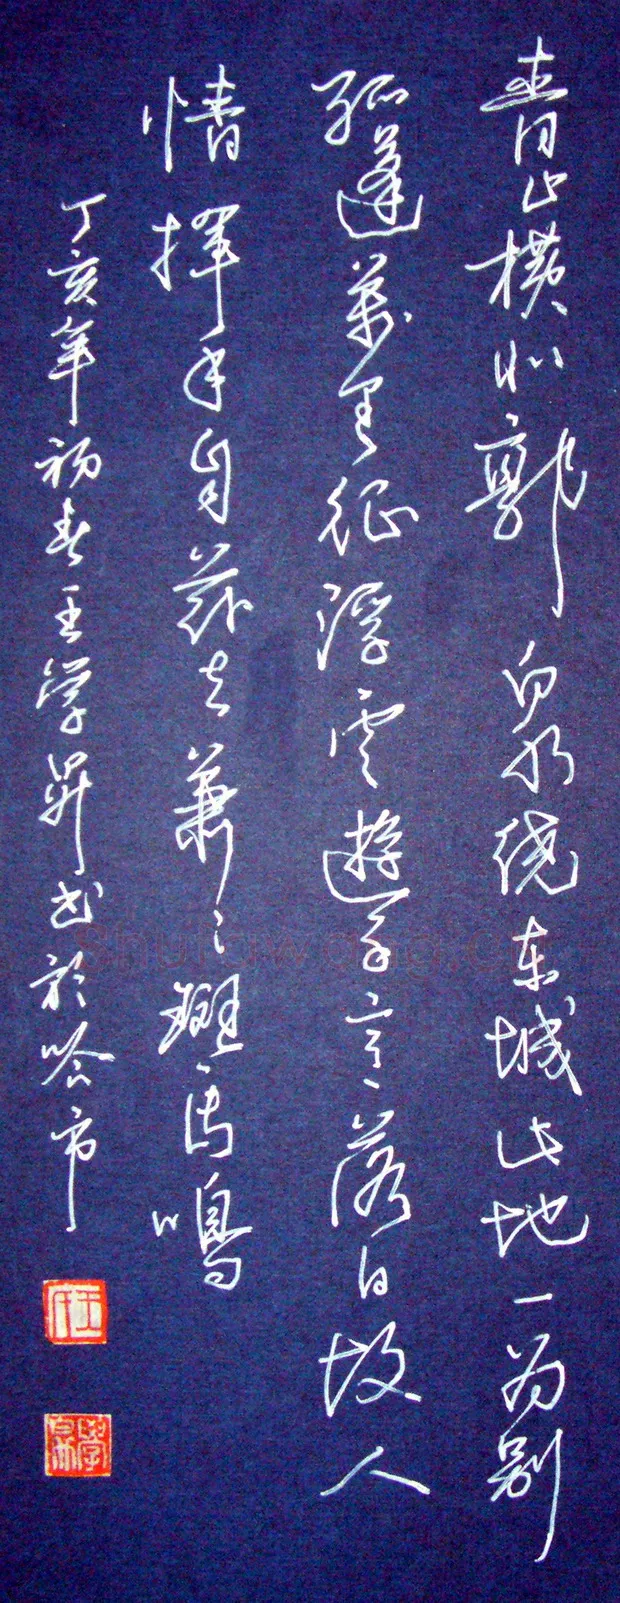 青山横北郭白水绕东城此地一为别
孤蓬萬里征浮雲遊子意落日故人
情揮手自兹去萧々班马鸣
丁亥年初春王学昇书於哈市
王氏
學昇